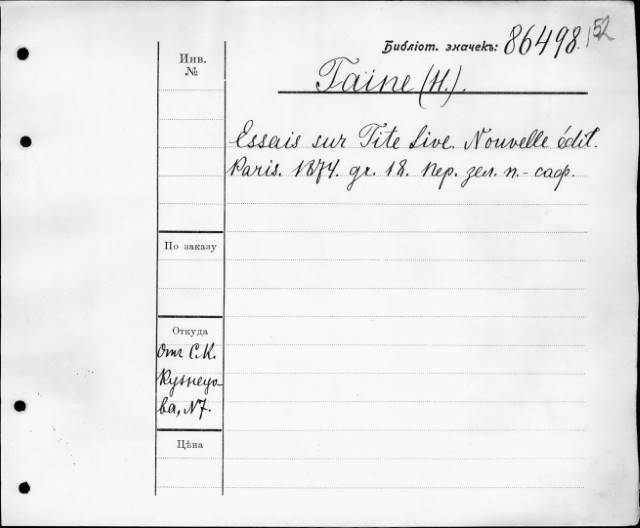 Библіот. значекъ: 86498. 152
Инв.
№
Taine (H.).
Essais sur Tite Live. Nouvelle édit.
Paris. 1874. gr. 18. Пер. зел. п.-саф.
По заказу
Откуда
Отъ С.К.
Кузнецо-
ва, №7.
Цѣна